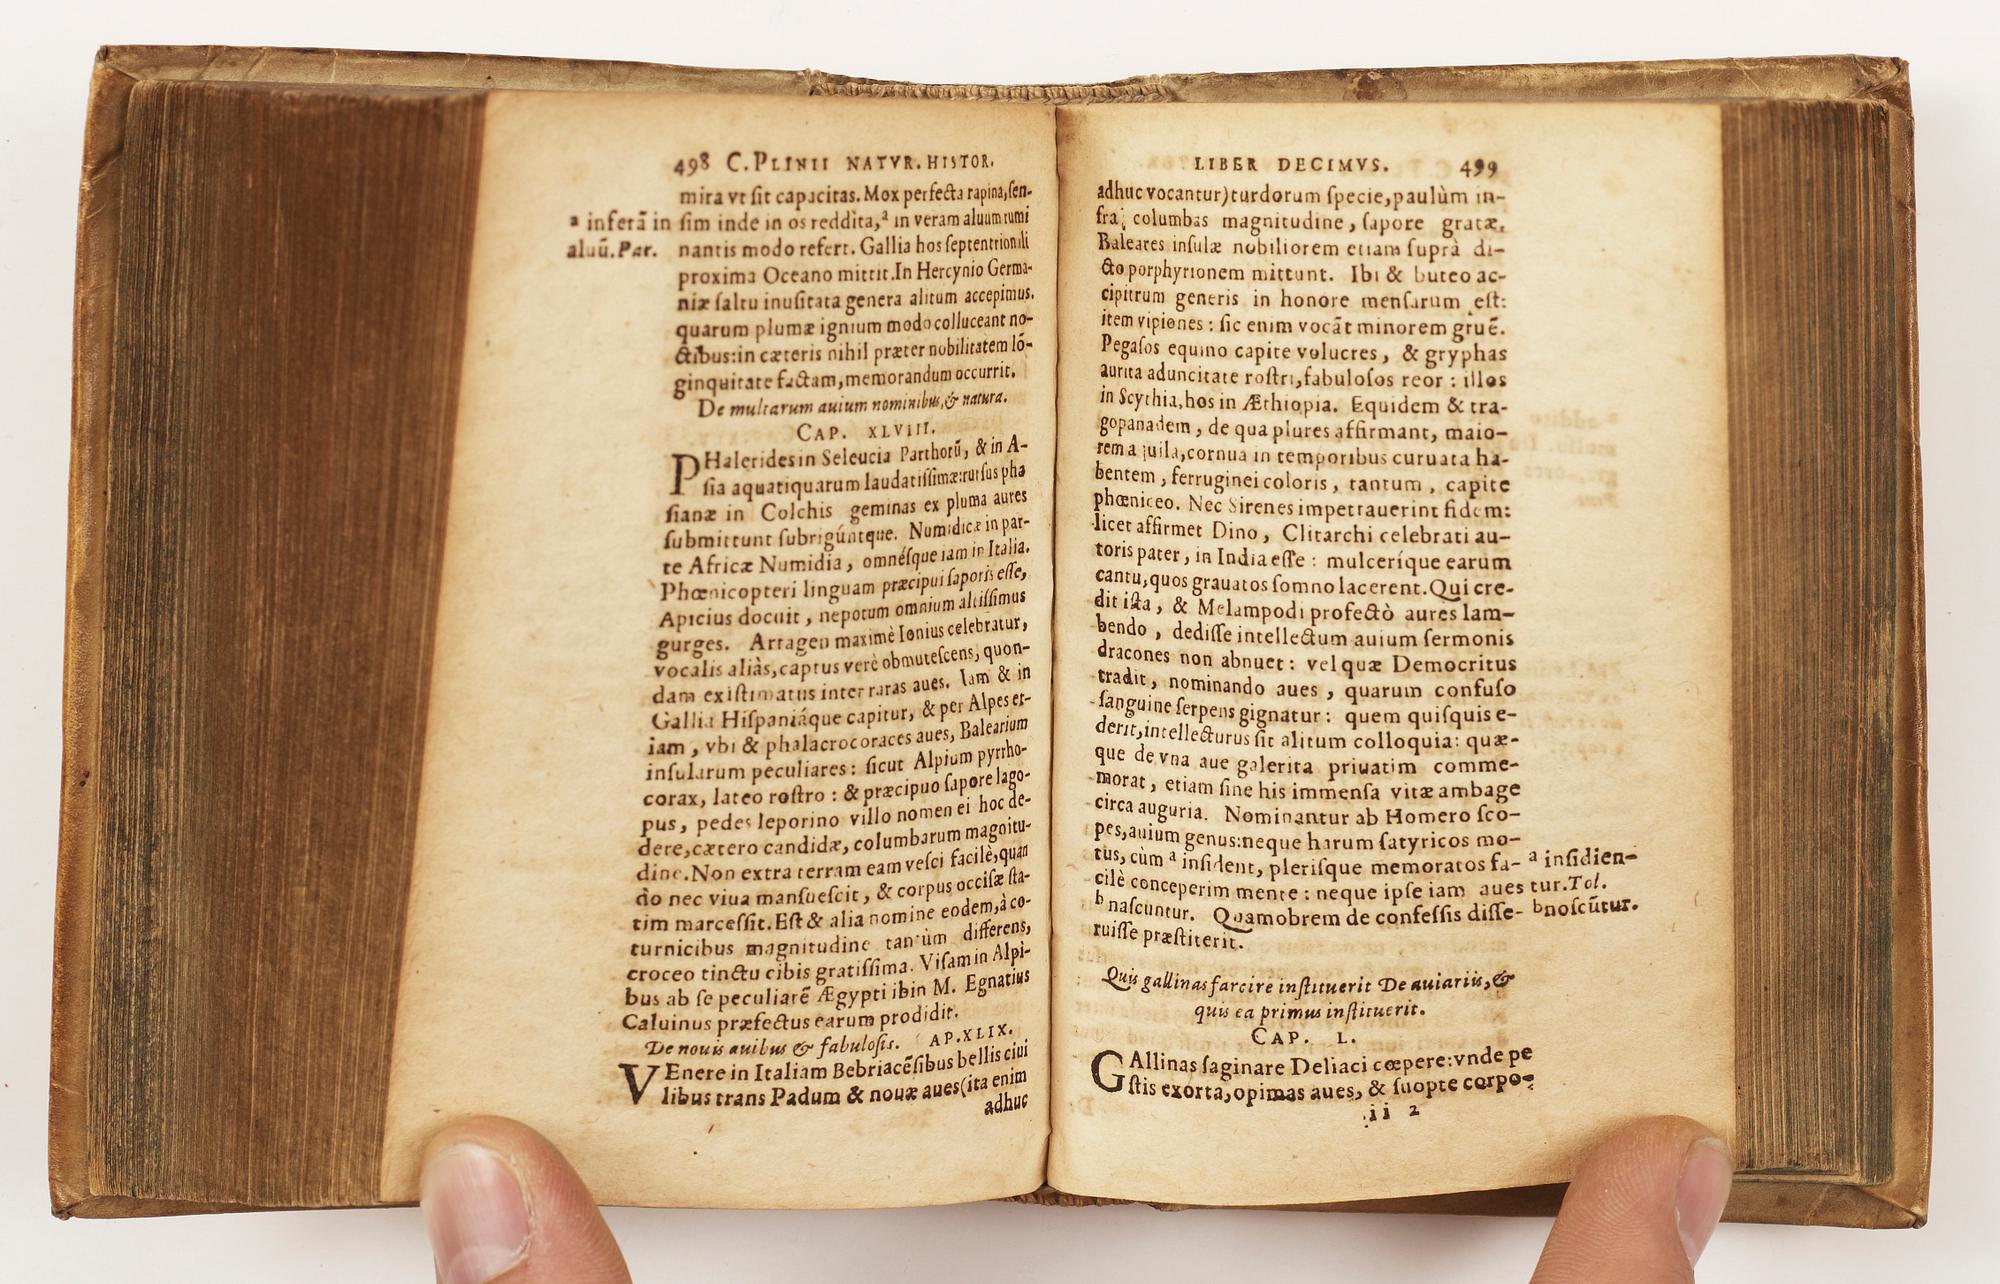 498 C. PLINII NATVR. HISTOR.
mira vt ſit capacitas. Mox perfecta rapina, ſen-
ſim inde in os reddita,ᵃ in veram aluum rumi
nantis modo refert. Gallia hos ſeptentrionali
proxima Oceano mittit. In Hercynio Germa-
niæ ſaltu inuſitata genera alitum accepimus.
quarum plumæ ignium modo colluceant no-
ctibus: in cæteris nihil præter nobilitatem lō-
ginquitate factam, memorandum occurrit.
ᵃ inferā in
aluū. Par.
De multarum auium nominibus, & natura.
CAP. XLVIII.
PHalerides in Seleucia Parthorū, & in A-
ſia aquatiquarum laudatiſſimæ: rurſus pha
ſianæ in Colchis geminas ex pluma aures
ſubmittunt ſubrigúntque. Numidicæ in par-
te Africæ Numidia, omnéſque iam in Italia.
Phœnicopteri linguam præcipui ſaporis eſſe,
Apicius docuit, nepotum omnium altiſſimus
gurges. Attagen maximè Ionius celebratur,
vocalis aliàs, captus verè obmuteſcens, quon-
dam exiſtimatus inter raras aues. Iam & in
Gallia Hiſpaniáque capitur, & per Alpes et-
iam, vbi & phalacrocoraces aues, Balearium
inſularum peculiares: ſicut Alpium pyrrho-
corax, luteo roſtro: & præcipuo ſapore lago-
pus, pedes leporino villo nomen ei hoc de-
dere, cætero candidæ, columbarum magnitu-
dine. Non extra terram eam veſci facilè, quan
do nec viua manſueſcit, & corpus occiſæ ſta-
tim marceſſit. Eſt & alia nomine eodem, à co-
turnicibus magnitudine tantùm differens,
croceo tinctu cibis gratiſſima. Viſam in Alpi-
bus ab ſe peculiarē Ægypti ibin M. Egnatius
Caluinus præfectus earum prodidit.
De nouis auibus & fabuloſis. AP. XLIX.
VEnere in Italiam Bebriacēſibus bellis ciui
libus trans Padum & nouæ aues (ita enim
adhuc
LIBER DECIMVS. 499
adhuc vocantur) turdorum ſpecie, paulùm in-
fra columbas magnitudine, ſapore gratæ.
Baleares inſulæ nobiliorem etiam ſuprà di-
cto porphyrionem mittunt. Ibi & buteo ac-
cipitrum generis in honore menſarum eſt:
item vipiones: ſic enim vocāt minorem gruē.
Pegaſos equino capite volucres, & gryphas
aurita aduncitate roſtri, fabuloſos reor: illos
in Scythia, hos in Æthiopia. Equidem & tra-
gopanadem, de qua plures affirmant, maio-
rem aquila, cornua in temporibus curuata ha-
bentem, ferruginei coloris, tantum, capite
phœniceo. Nec Sirenes impetrauerint fidem:
licet affirmet Dino, Clitarchi celebrati au-
toris pater, in India eſſe: mulceríque earum
cantu, quos grauatos ſomno lacerent. Qui cre-
dit iſta, & Melampodi profectò aures lam-
bendo, dediſſe intellectum auium ſermonis
dracones non abnuet: vel quæ Democritus
tradit, nominando aues, quarum confuſo
ſanguine ſerpens gignatur: quem quiſquis e-
derit, intellecturus ſit alitum colloquia: quæ-
que de vna aue galerita priuatim comme-
morat, etiam ſine his immenſa vitæ ambage
circa auguria. Nominantur ab Homero ſco-
pes, auium genus: neque harum ſatyricos mo-
tus, cùm ᵃ inſident, pleriſque memoratos fa-
cilè conceperim mente: neque ipſe iam aues
ᵇ naſcuntur. Quamobrem de confeſſis diſſe-
ruiſſe præſtiterit.
ᵃ inſidien-
tur. Tol.
ᵇ noſcūtur.
Quis gallinas farcire inſtituerit De auiariis, &
quis ea primus inſtituerit.
CAP. L.
GAllinas ſaginare Deliaci cœpere: vnde pe
ſtis exorta, opimas aues, & ſuopte corpo-
ii 2